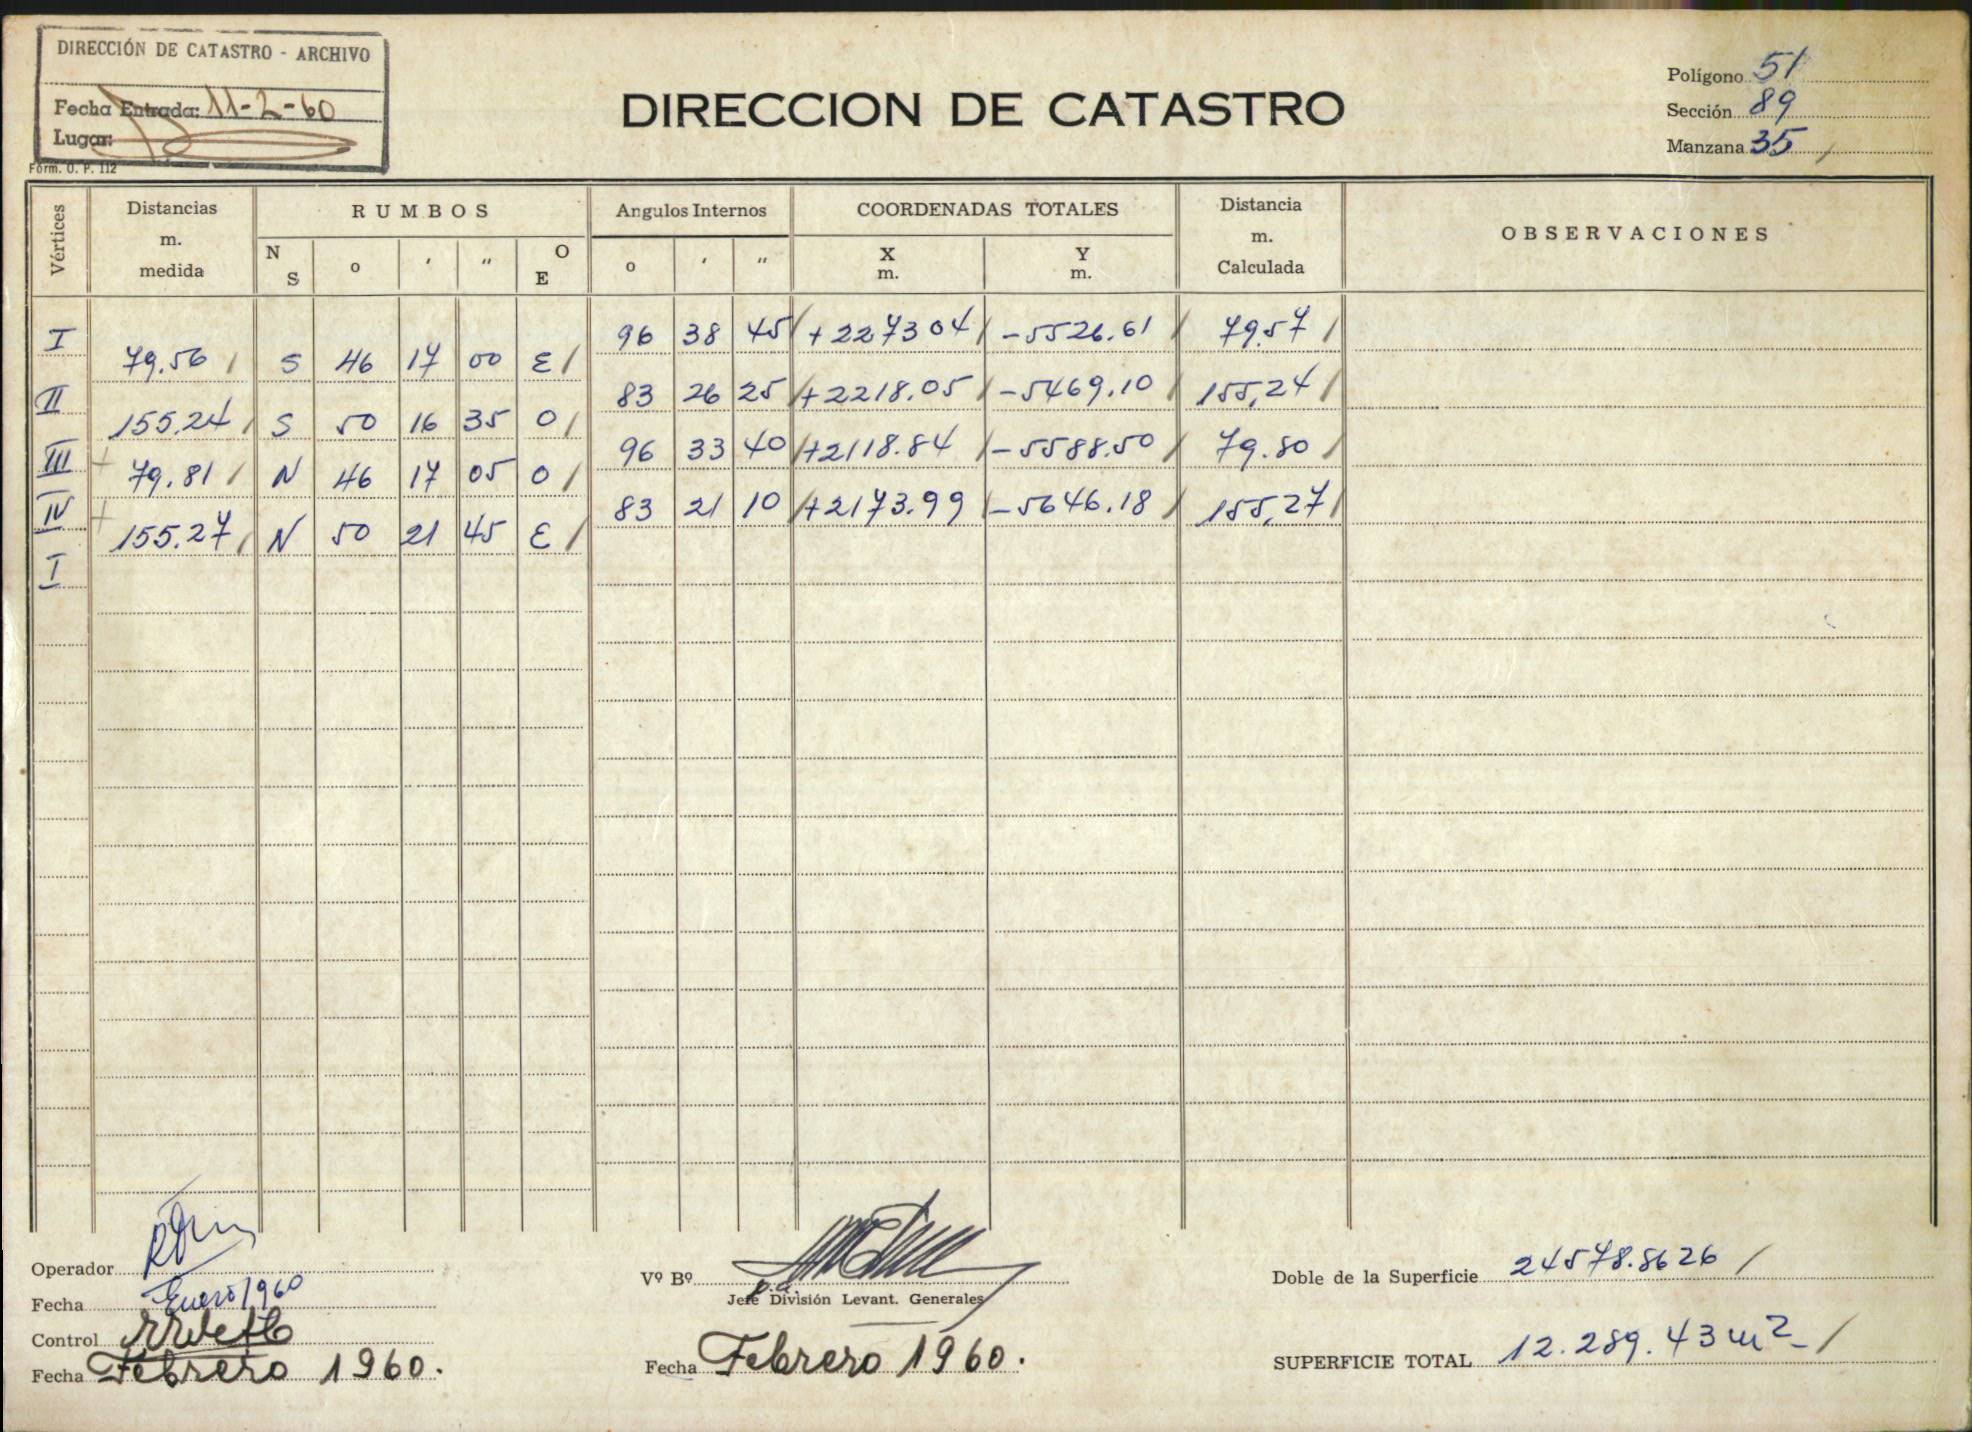 DIRECCIÓN DE CATASTRO - ARCHIVO
Fecha Entrada: 11-2-60
Lugar:
Form. O. P. 112
DIRECCION DE CATASTRO
Polígono 51
Sección 89
Manzana 35 /
Vértices Distancias m. medida RUMBOS Angulos Internos COORDENADAS TOTALES Distancia m. Calculada OBSERVACIONES
N S o ' " O E o ' " X m. Y m.
I 96 38 45 / +2273 04 / -5526.61 / 79.57 /
79.56 / S 46 17 00 E /
II 83 26 25 / +2218.05 / -5469.10 / 155,24 /
155.24 / S 50 16 35 O /
III 96 33 40 / +2118.84 / -5588.50 / 79.80 /
+ 79.81 / N 46 17 05 O /
IV 83 21 10 / +2173.99 / -5646.18 / 155,27 /
+ 155.27 / N 50 21 45 E /
I
Operador
Fecha Enero 1960
Control
Fecha Febrero 1960.
Vº Bº
p.a.
Jefe División Levant. Generales
Fecha Febrero 1960.
Doble de la Superficie 24578.8626 /
SUPERFICIE TOTAL 12.289.43 m2- /